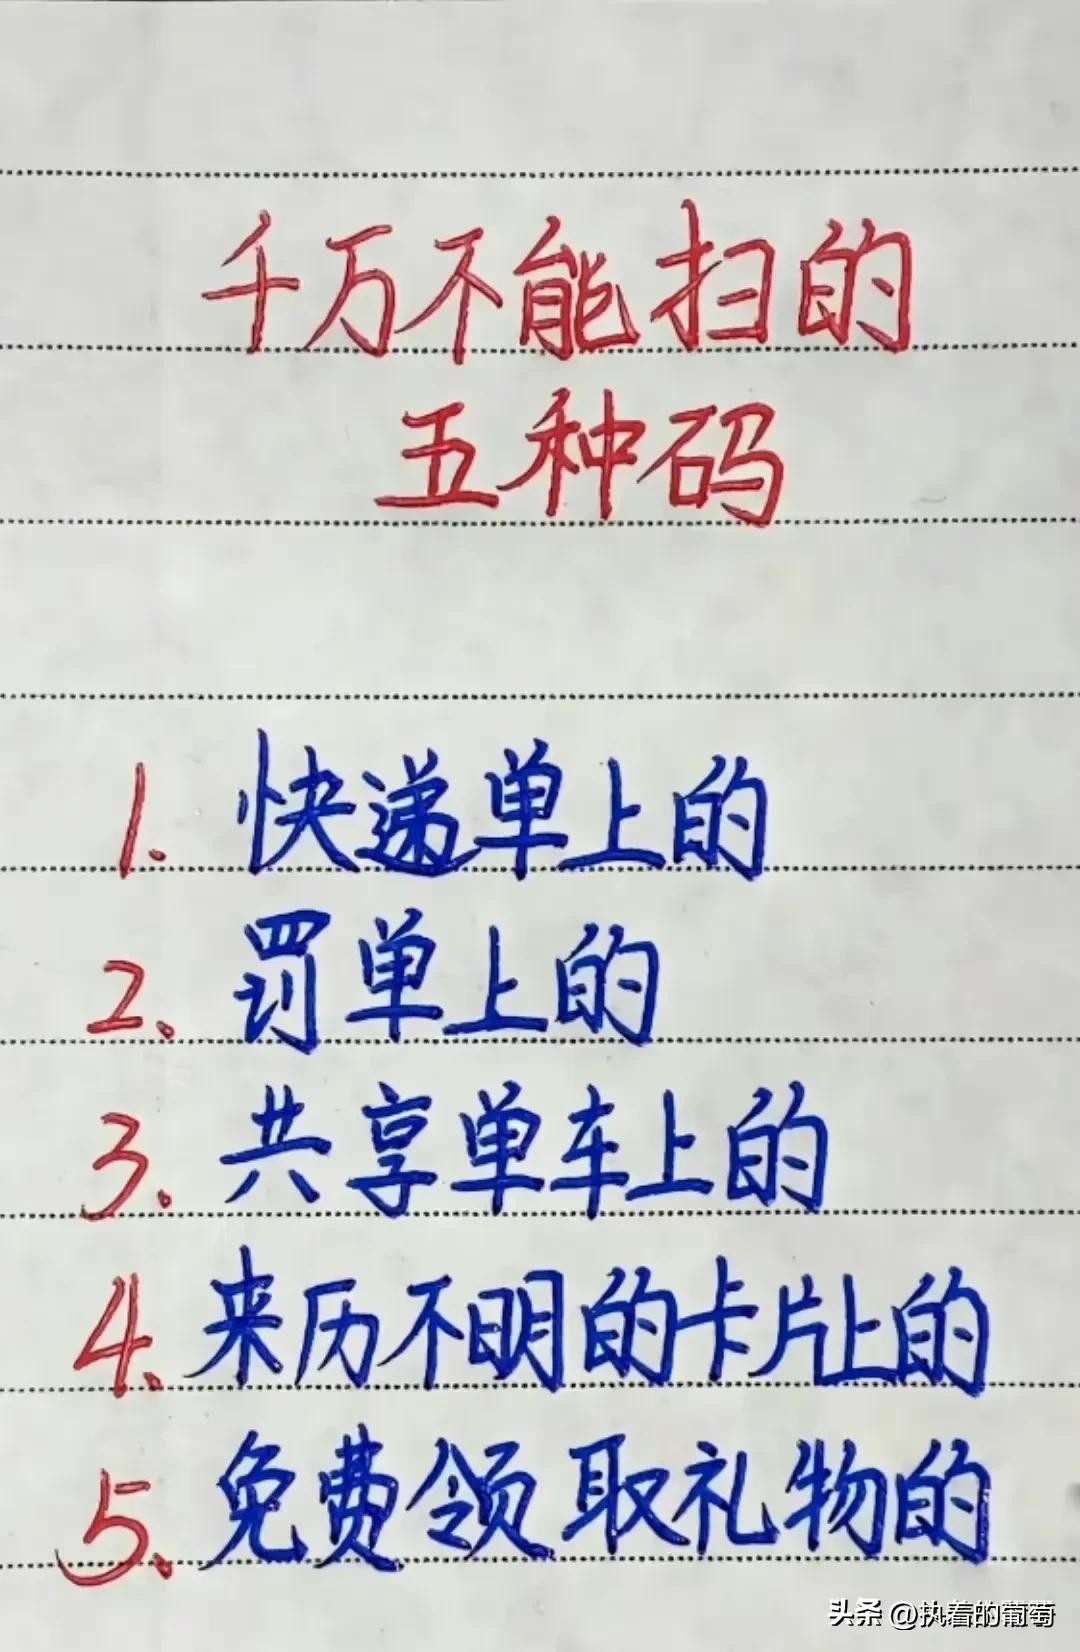 千万不能扫的
五种码
1. 快递单上的
2、罚单上的
3. 共享单车上的
4、来历不明的卡片上的
5、免费领取礼物的
头条 @执着的葡萄